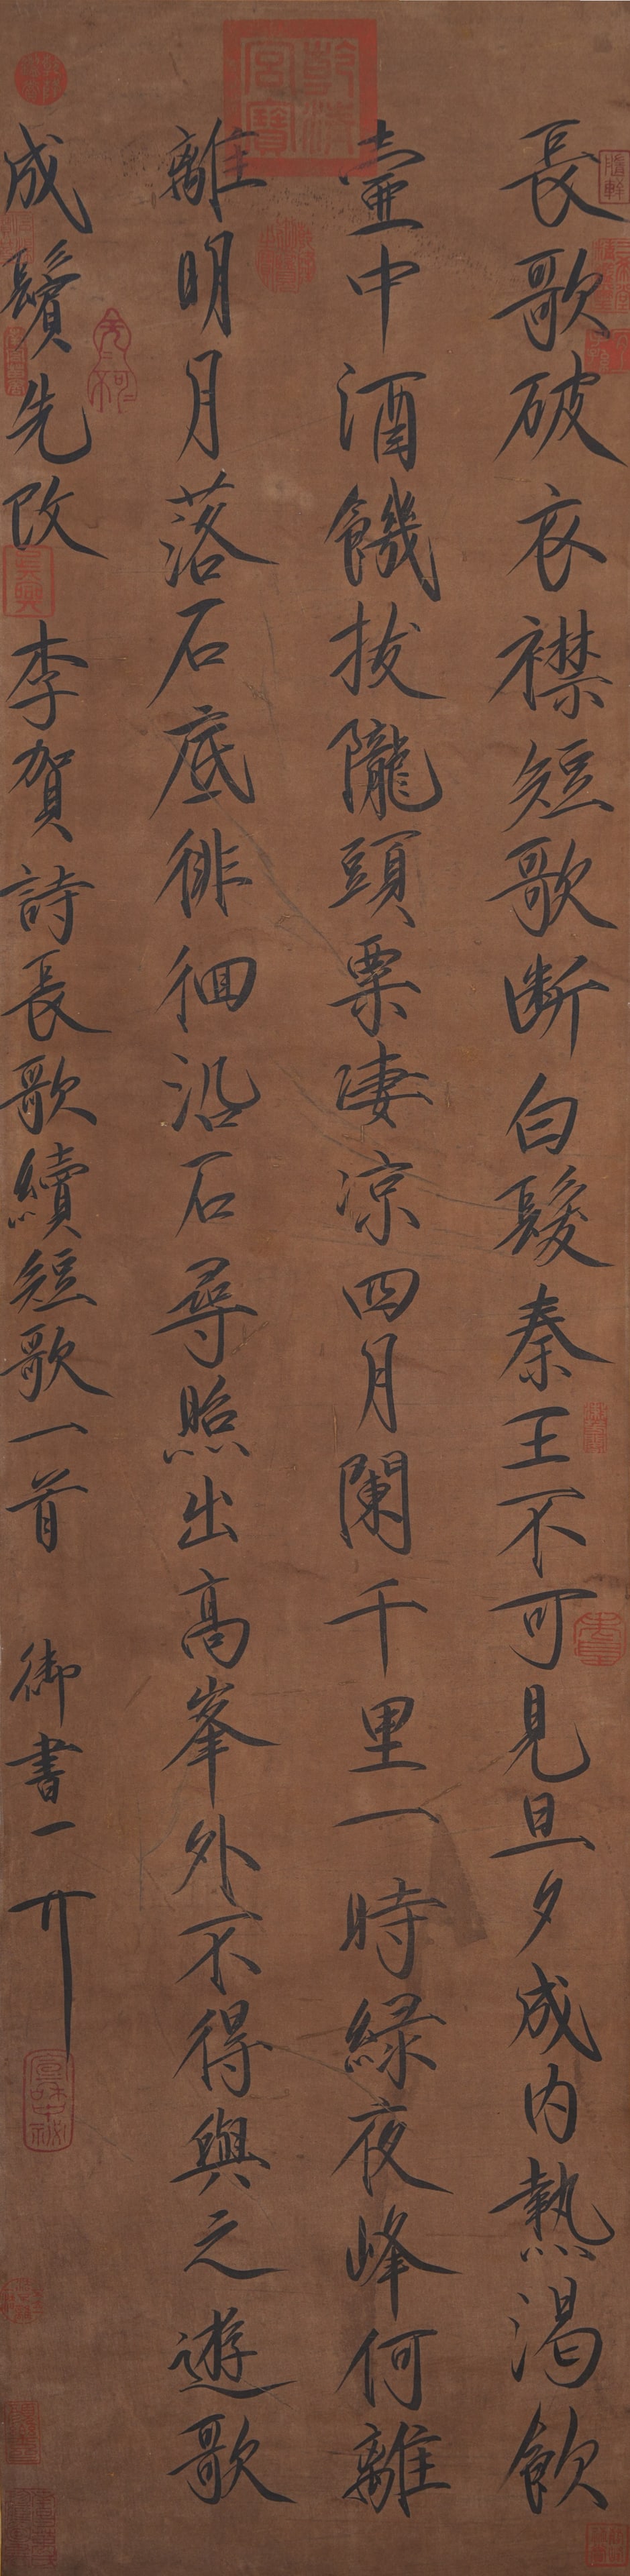 長歌破衣襟短歌断白髮秦王不可見旦夕成内熱渴飲
壺中酒饑拔隴頭粟凄涼四月闌千里一時緑夜峰何離
離明月落石底徘徊沿石尋照出高峯外不得與之遊歌
成鬢先改 李賀詩長歌續短歌一首 御書
吳興